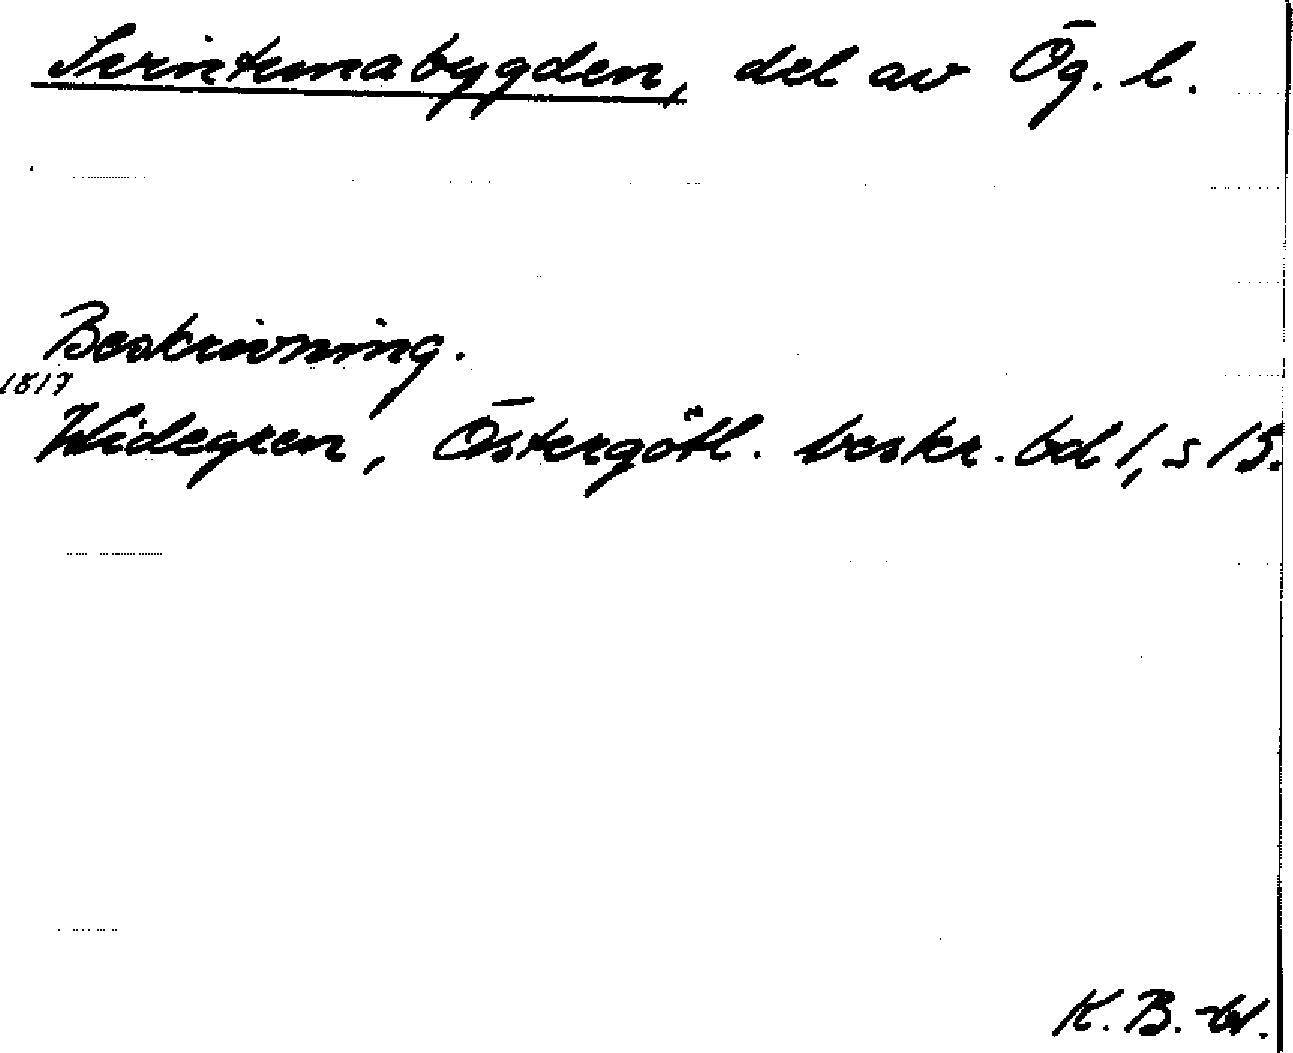 Svintunabygden, del av Ög. l.
Beskrivning.
1817
Widegren, Östergötl. beskr. bd 1, s 15.
K. B.-W.